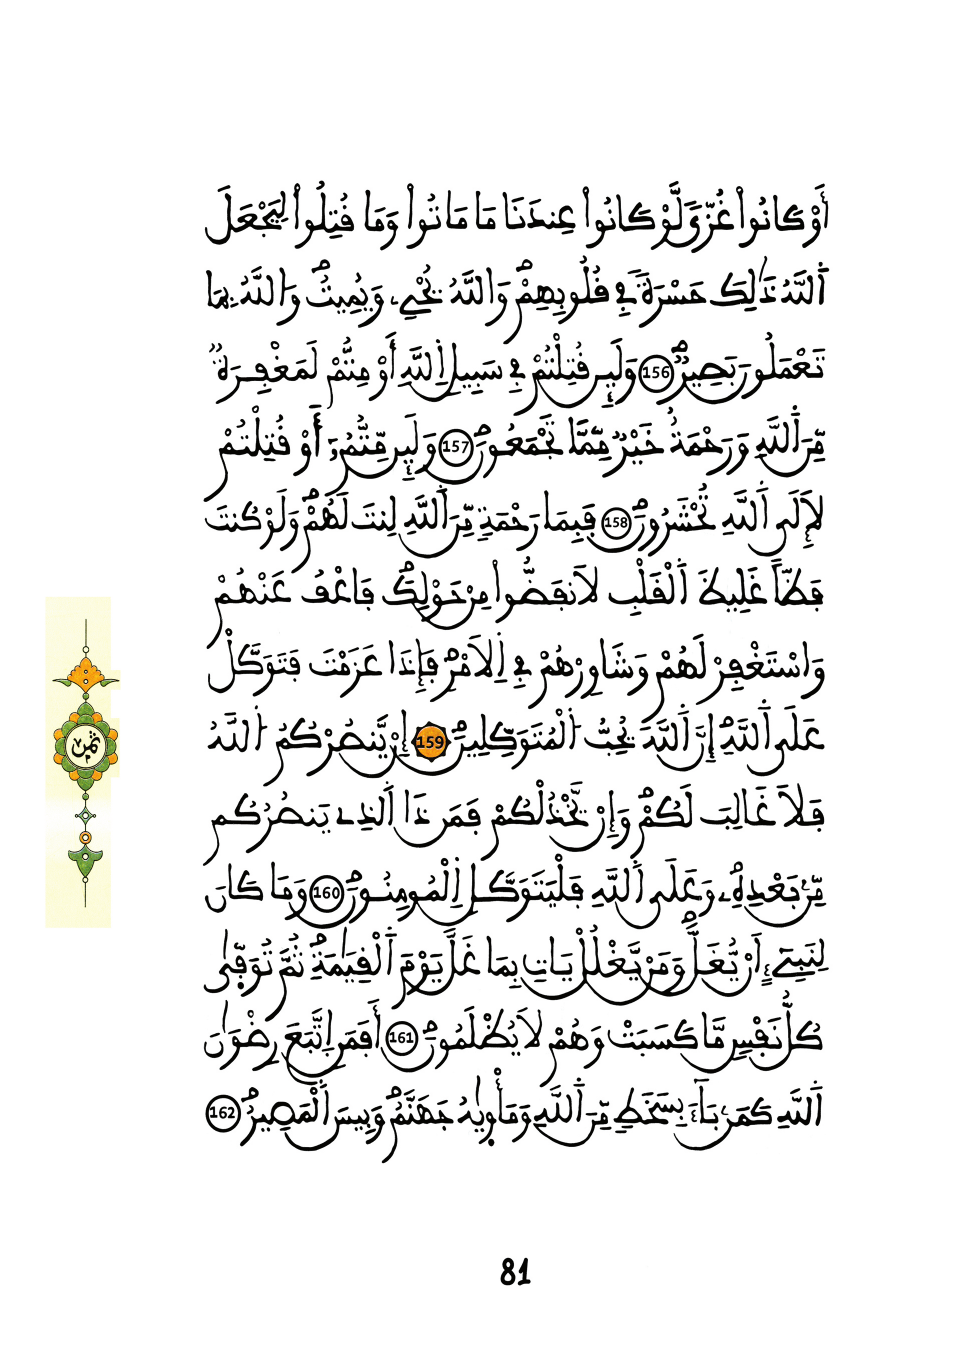 أَوْ كَانُواْ غُزّىٗ لَّوْ كَانُواْ عِندَنَا مَا مَاتُواْ وَمَا قُتِلُواْ لِيَجْعَلَ
اَ۬للَّهُ ذَٰلِكَ حَسْرَةٗ فِے قُلُوبِهِمْۖ وَاللَّهُ يُحْيِۦ وَيُمِيتُۖ وَاللَّهُ بِمَا
تَعْمَلُونَ بَصِيرٞۖ 156 وَلَئِن قُتِلْتُمْ فِے سَبِيلِ اِ۬للَّهِ أَوْ مِتُّمْ لَمَغْفِرَةٞ
مِّنَ اَ۬للَّهِ وَرَحْمَةٌ خَيْرٞ مِّمَّا تَجْمَعُونَۖ 157 وَلَئِن مِّتُّمُۥٓ أَوْ قُتِلْتُمْ
لَإِلَى اَ۬للَّهِ تُحْشَرُونَۖ 158 فَبِمَا رَحْمَةٖ مِّنَ اَ۬للَّهِ لِنتَ لَهُمْۖ وَلَوْ كُنتَ
فَظّاً غَلِيظَ اَ۬لْقَلْبِ لَانفَضُّواْ مِنْ حَوْلِكَۖ فَاعْفُ عَنْهُمْ
وَاسْتَغْفِرْ لَهُمْ وَشَاوِرْهُمْ فِے اِ۬لَامْرِۖ فَإِذَا عَزَمْتَ فَتَوَكَّلْ
عَلَى اَ۬للَّهِۖ إِنَّ اَ۬للَّهَ يُحِبُّ اُ۬لْمُتَوَكِّلِينَۖ 159 إِنْ يَّنصُرْكُمُ اُ۬للَّهُ
فَلَا غَالِبَ لَكُمْۖ وَإِنْ يَّخْذُلْكُمْ فَمَن ذَا اَ۬لذِے يَنصُرُكُم
مِّنۢ بَعْدِهِۦۖ وَعَلَى اَ۬للَّهِ فَلْيَتَوَكَّلِ اِ۬لْمُومِنُونَۖ 160 وَمَا كَانَ
لِنَبِيٓءٍ اَنْ يُّغَلَّۖ وَمَنْ يَّغْلُلْ يَاتِ بِمَا غَلَّ يَوْمَ اَ۬لْقِيَٰمَةِۖ ثُمَّ تُوَفّ۪ىٰ
كُلُّ نَفْسٖ مَّا كَسَبَتْ وَهُمْ لَا يُظْلَمُونَۖ 161 أَفَمَنِ اِ۪تَّبَعَ رِضْوَٰنَ
اَ۬للَّهِ كَمَنۢ بَآءَ بِسَخَطٖ مِّنَ اَ۬للَّهِ وَمَأْو۪يٰهُ جَهَنَّمُۖ وَبِيسَ اَ۬لْمَصِيرُۖ 162
ثمن
81